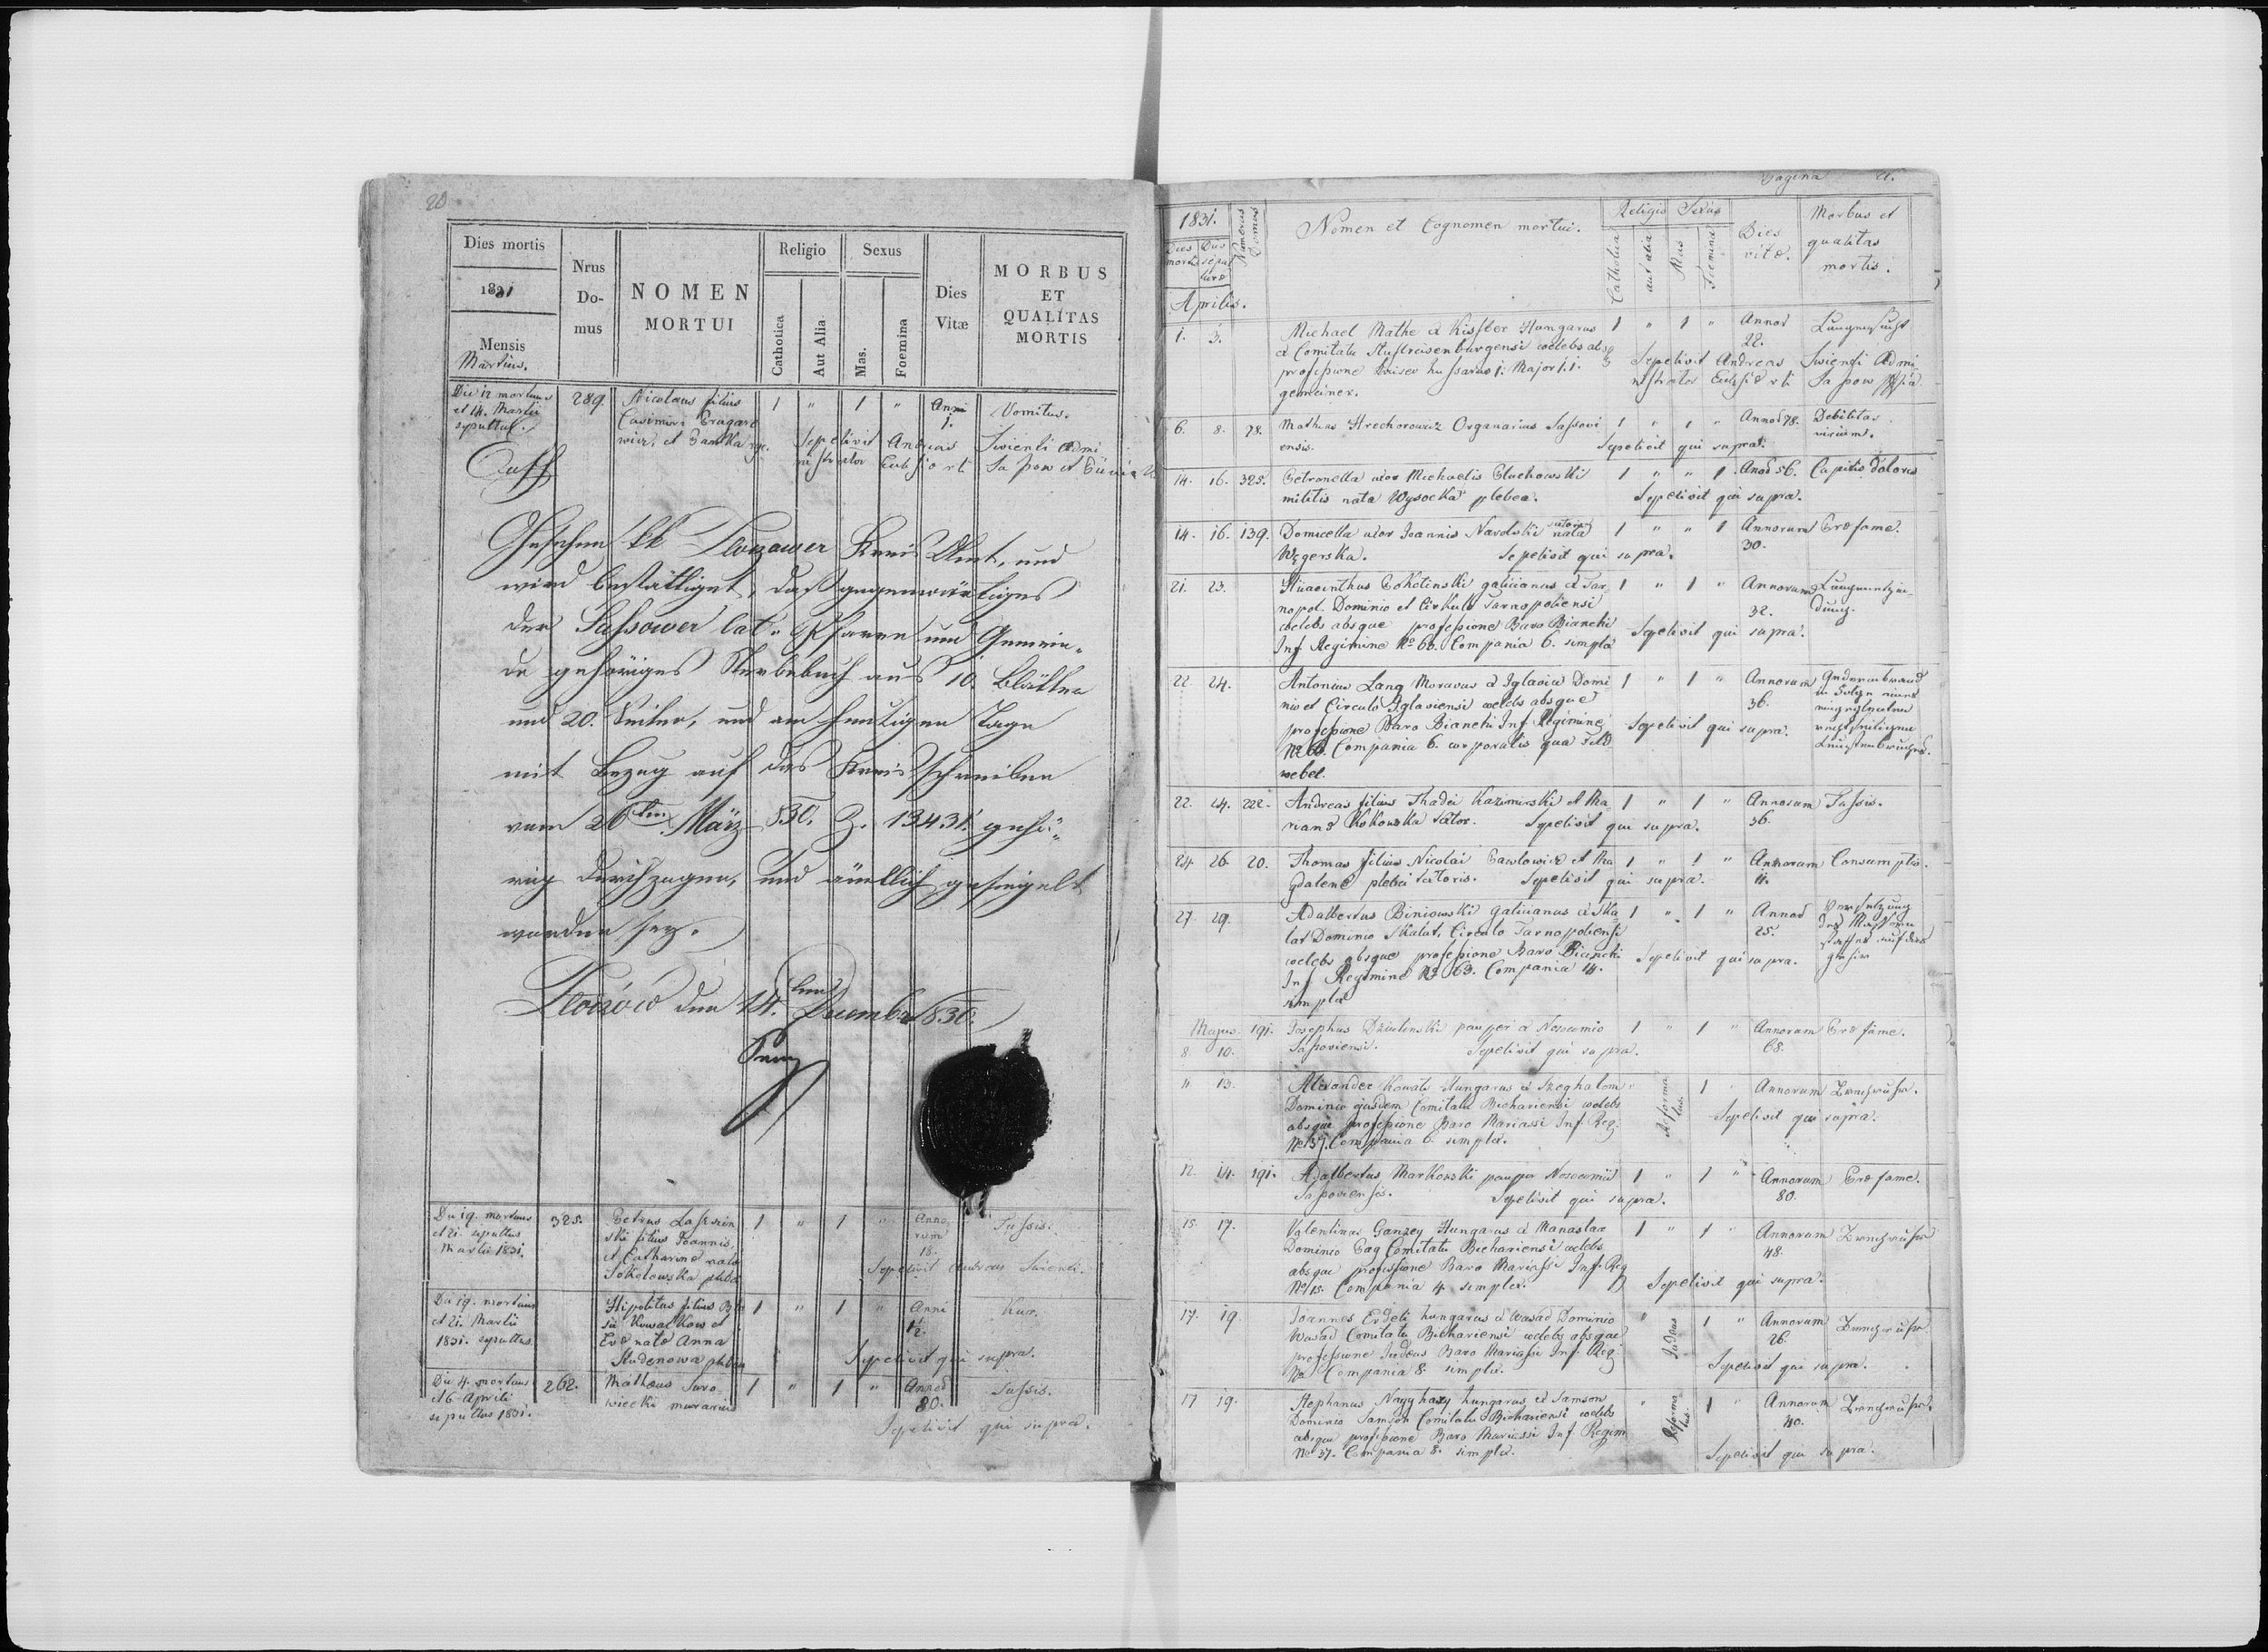 20
Dies mortis
1831
Mensis
Martius.
Nrus
Do-
mus
NOMEN
MORTUI
Religio
Catholica
Aut Alia
Sexus
Mas.
Foemina
Dies
Vitæ
MORBUS
ET
QUALITAS
MORTIS
Die 12 mortuus
et 14. Martii
sepultus.
289.
Nicolaus filius
Casimiri
1 " 1 "
Anni
1.
Vomitus.
Sepelivit Andreas Swienti Admi
nistrator
k k Zloczower Kreis Amt, und
wird bestättiget, daß gegenwärtiges
der Sassower lat. Pfarre und Gemein-
de gehöriges Sterbebuch aus 10. Blätter
und 20. Seiten, und am heutigen Tage
mit Bezug auf das Kreisschreiben
vom 26ten März 830. Z. 13431. gehö-
rig durchzogen, und ämtlich gesiegelt
worden sey.
Zloczów den 14ten Decemb. 1830.
Die 19. mortuus
et 21. sepultus
Martii 1831.
325.
Petrus
ski filius Joannis,
et Catharine nata
Sokolowska
1 " 1 "
Anno
rum
18.
Tussis.
Sepelivit Andreas Swienti.
Die 19. mortuus
et 21. Martii
1831. sepultus
Hipolitus filius
Kowalkow et
Evæ nata Anna
Studenowa plebea
1 " 1 "
Anni
1/2.
Sepelivit qui supra.
Die 4. mortuus
et 6 Aprili
sepultus 1831.
262.
Mathæus Suro
wiecki murarius
1 " 1 "
Annos
80.
Tussis.
Sepelivit qui supra.
Pagina 21.
1831.
Dies
mortis
Dies
sepul
turæ
Numerus
Domus
Nomen et Cognomen mortui.
Religio
Catholica
aut alia
Sexus
Mas
Foemina
Dies
vitæ.
Morbus et
qualitas
mortis.
Aprilis.
1. 3.
Michael Mathe à Hungarus 1 " 1 " Annos
à Comitatu coelebs absq 22.
professione
gemeiner.
Sepelivit Andreas Swienti Admi
nistrator
6. 8. 78. Mathias Hrechorowicz Organarius Sassovi 1 " 1 " Annos 78. Debilitas
ensis. Sepelivit qui supra. virium.
14. 16. 325. Petronella uxor Michaelis 1 " " 1 Anos 56. Capitis dolores
militis nata Wysocka plebea. Sepelivit qui supra.
14. 16. 139. Domicella uxor Joannis Narolski sutoris nata 1 " " 1 Annorum Præ fame.
Węgerska. Sepelivit qui supra. 30.
21. 23. Hiacinthus galicianus à Tar 1 " 1 " Annorum Lungenentzün-
nopol. Dominio et Cirkulo Tarnopoliensi 32. dung.
coelebs absque professione Baro Bianchi Sepelivit qui supra.
Inf. Regimine No 63. Compania 6. simplex
22. 24. Antonius Lang Moravus à Iglavia Domi 1 " 1 " Annorum
nio et Circulo Iglaviensi coelebs absque 36. in Folge eines
professione Baro Bianchi Inf. Regimine Sepelivit qui supra.
No 63. Compania 6. corporalis qua Feld
webel.
22. 24. 222. Andreas filius Thadei Kazimirski et Ma 1 " 1 " Annorum Tussis.
rianæ Kokowska sator. Sepelivit qui supra. 36.
24. 26. 20. Thomas filius Nicolai Pawlowicz et Ma 1 " 1 " Annorum Consumptio.
gdalenæ plebei satoris. Sepelivit qui supra. 11.
27. 29. Adalbertus Biniowski galicianus à Ska 1 " 1 " Annos Versetzung
lat Dominio Skalat, Circulo Tarnopoliensi 25.
coelebs absque professione Baro Bianchi Sepelivit qui supra.
Inf. Regimine No 63. Compania 14.
simplex
Majus. 191. Josephus pauper à Nosocomio 1 " 1 " Annorum Præ fame.
8 10. Sassoviensi. Sepelivit qui supra. 68.
11. 13. Alexander Kowats Hungarus à Szeghalom Reformatus. 1 Annorum
Dominio ejusdem Comitatu Bichariensi coelebs
absque professione Baro Mariassi Inf. Reg. Sepelivit qui supra.
No 37. Compania 6. simplex.
12. 14. 191. Adalbertus Markowski pauper Nosocomii 1 " 1 " Annorum Præ fame.
Sassoviensis. Sepelivit qui supra. 80.
15. 17. Valentinus Ganzey Hungarus à 1 " 1 Annorum
Dominio Comitatu Bichariensi coelebs 48.
absque professione Baro Mariassi Inf. Reg Sepelivit qui supra.
Compania 4. simplex.
17. 19. Joannes Erdeli hungarus à Wasad Dominio " Judeus 1 " Annorum
Wasad Comitatu Bichariensi coelebs absque 26.
professione Judeus Baro Mariassi Inf. Reg. Sepelivit qui supra.
No Compania 8. simplex.
17 19. Stephanus hungarus à Samson " Reformatus. 1 " Annorum
Dominio Samson Comitatu Bichariensi coelebs 40.
absque professione Baro Mariassi Inf Regim
No 37. Compania 8. simplex. Sepelivit qui supra.